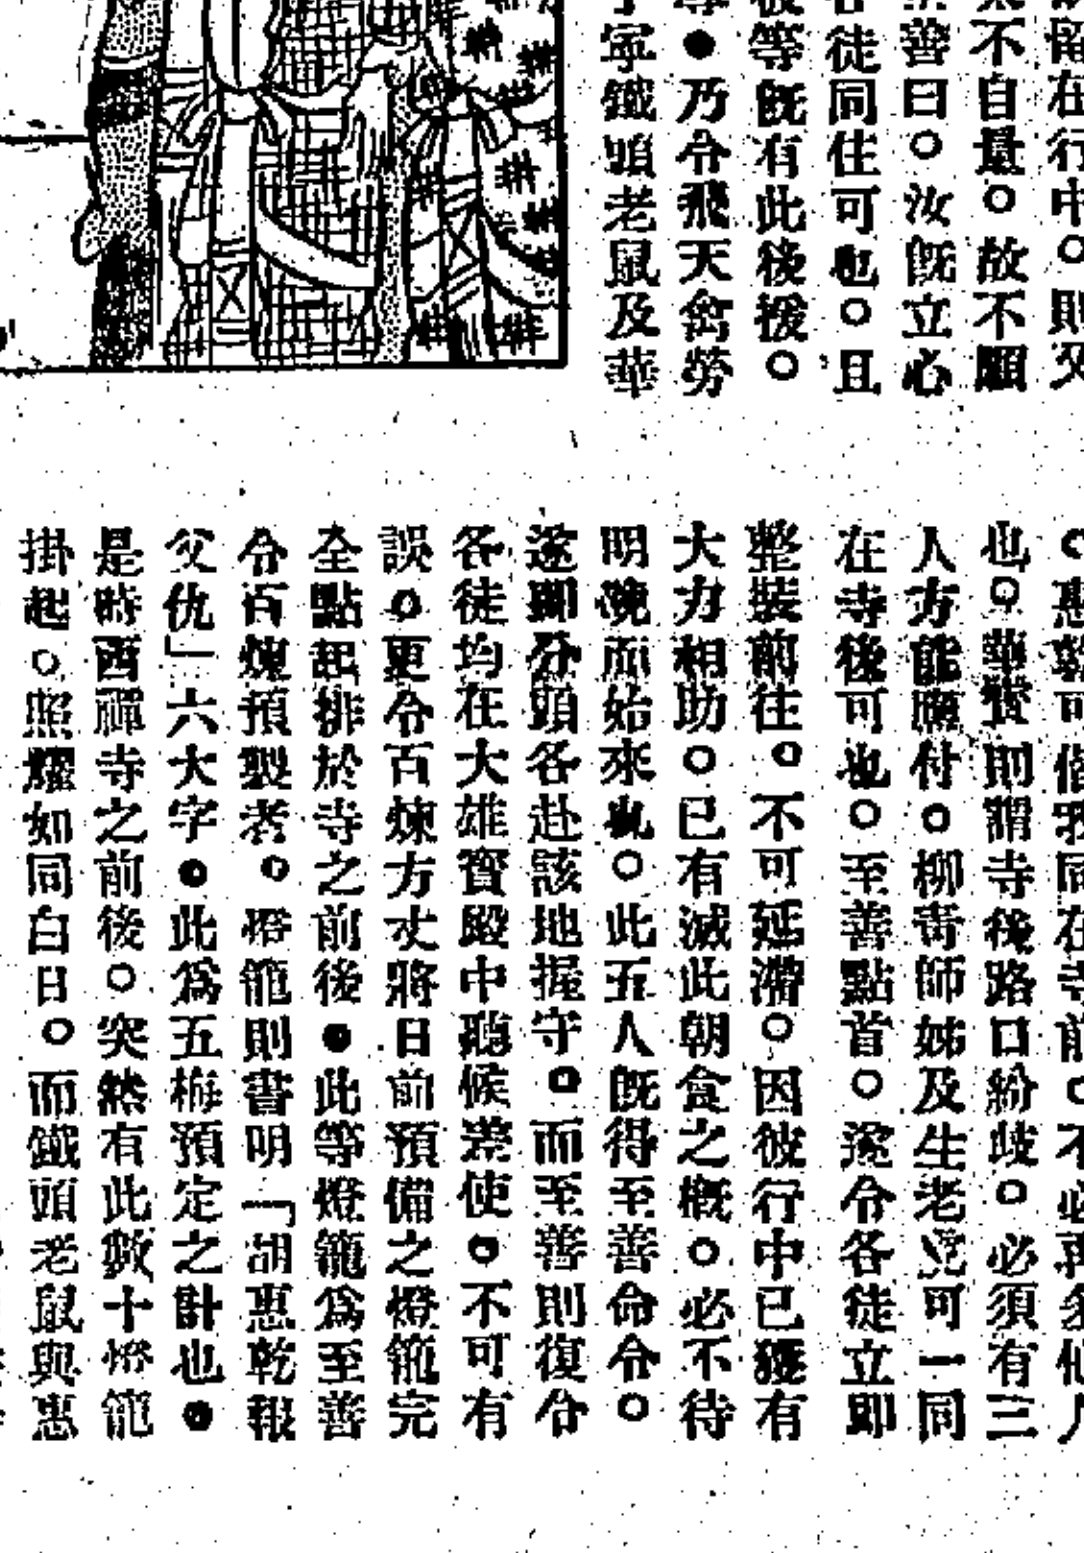 留在行中。則又
不自量。故不願
善曰。汝既立心
徒同住可也。且
等既有此後援。
●乃令飛天禽勞
寧鐵頭老鼠及華
。惠乾可偕雅同在寺前。不必再多他人
也。華寶則謂寺後路口紛歧。必須有三
人方能應付。柳青師姊及生老兒可一同
在寺後可也。至善點首。遂令各徒立即
整裝前往。不可延滯。因彼行中已獲有
大力相助。已有滅此朝食之概。必不待
明晚而始來也。此五人既得至善命令。
遂開分頭各赴該地握守。而至善則復令
各徒均在大雄寶殿中聽候差使。不可有
誤。更令百煉方丈將日前預備之燈籠完
全點起排於寺之前後●此等燈籠爲至善
令百煉預製者。燈籠則書明「胡惠乾報
父仇」六大字●此爲五梅預定之計也●
是時西禪寺之前後。突然有此數十燈籠
掛起。照耀如同白日。而鐵頭老鼠與惠